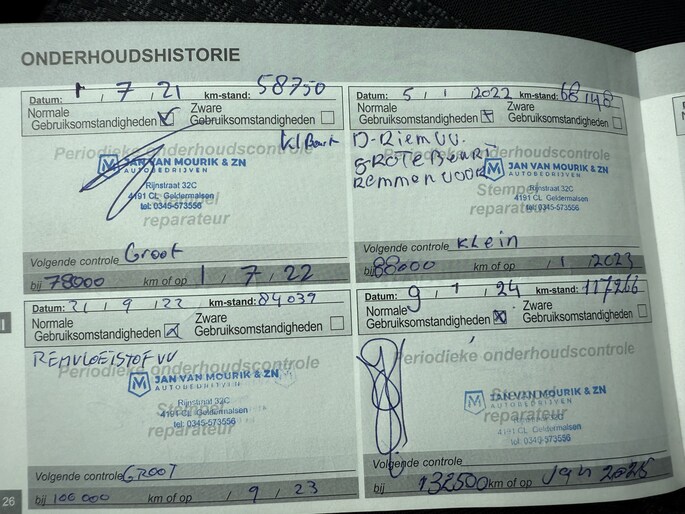 ONDERHOUDSHISTORIE
Datum: 1 / 7 / 21 km-stand: 58750
Normale Gebruiksomstandigheden Zware Gebruiksomstandigheden
Kl Beurt
Periodieke onderhoudscontrole
JAN VAN MOURIK & ZN
AUTOBEDRIJVEN
Rijnstraat 32C
4191 CL Geldermalsen
tel: 0345-573556
Stempel
reparateur
Volgende controle Groot
bij 78000 km of op 1 / 7 / 22
Datum: 5 / 1 / 2022 km-stand: 68148
Normale Gebruiksomstandigheden Zware Gebruiksomstandigheden
D-Riem VV.
GROTE BEURT
REMMEN VOOR
Periodieke onderhoudscontrole
JAN VAN MOURIK & ZN
AUTOBEDRIJVEN
Rijnstraat 32C
4191 CL Geldermalsen
tel: 0345-573556
Stempel
reparateur
Volgende controle Klein
bij 88000 km of op / 1 / 2023
Datum: 21 / 9 / 22 km-stand: 84039
Normale Gebruiksomstandigheden Zware Gebruiksomstandigheden
REMVLOEISTOF VV
Periodieke onderhoudscontrole
JAN VAN MOURIK & ZN
AUTOBEDRIJVEN
Rijnstraat 32C
4191 CL Geldermalsen
tel: 0345-573556
Stempel
reparateur
Volgende controle GROOT
bij 100 000 km of op / 9 / 23
Datum: 9 / 1 / 24 km-stand: 117266
Normale Gebruiksomstandigheden Zware Gebruiksomstandigheden
Periodieke onderhoudscontrole
JAN VAN MOURIK & ZN
AUTOBEDRIJVEN
Rijnstraat 32C
4191 CL Geldermalsen
tel: 0345-573556
Stempel
reparateur
Volgende controle
bij 132500 km of op Jan 2025
26